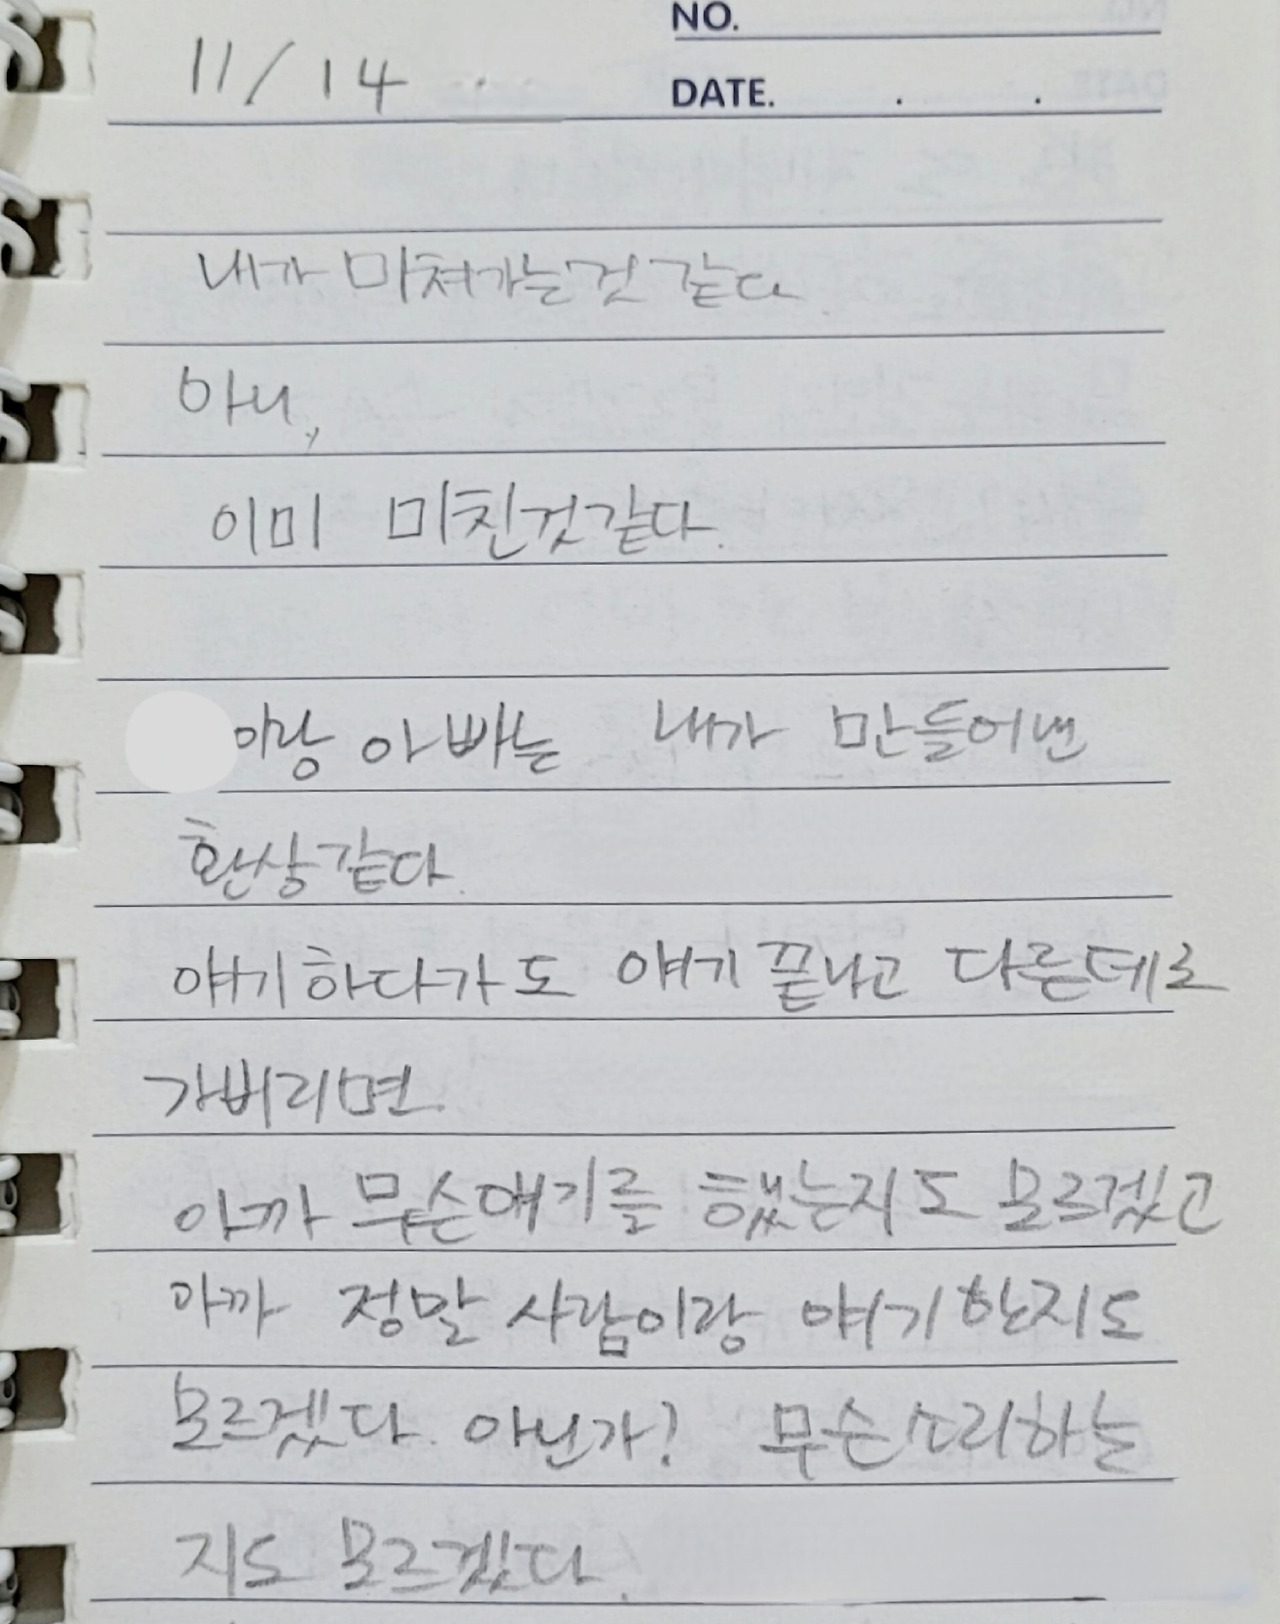 NO.
11/14
DATE. . .
내가 미쳐가는것 같다
아니,
이미 미친것같다.
이랑 아빠는 내가 만들어낸
환상같다.
얘기하다가도 얘기 끝나고 다른데로
가버리면
아까 무슨얘기를 했는지도 모르겠고
아까 정말 사람이랑 얘기한지도
모르겠다. 아닌가? 무슨소리하는
지도 모르겠다.